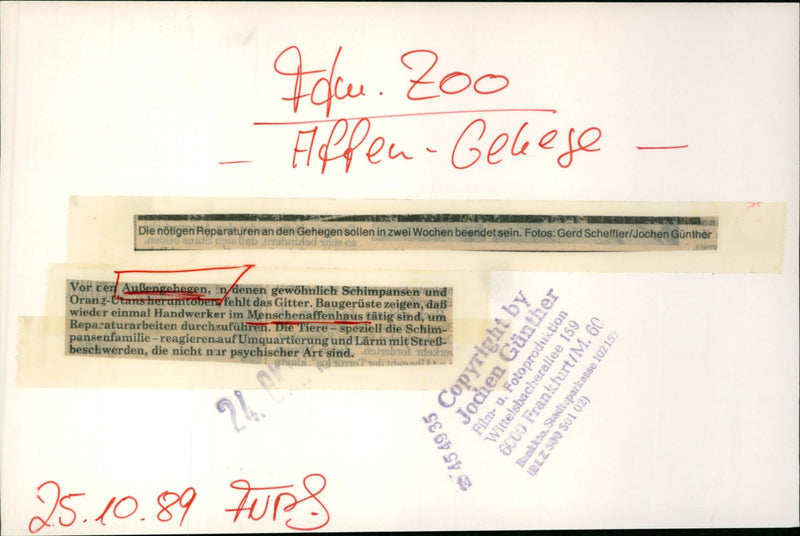 Ffm. Zoo
— Affen-Gehege —
Die nötigen Reparaturen an den Gehegen sollen in zwei Wochen beendet sein. Fotos: Gerd Scheffler/Jochen Günther
Vor den Außengehegen, in denen gewöhnlich Schimpansen und
Orang-Utans herumtoben, fehlt das Gitter. Baugerüste zeigen, daß
wieder einmal Handwerker im Menschenaffenhaus tätig sind, um
Reparaturarbeiten durchzuführen. Die Tiere – speziell die Schim-
pansenfamilie – reagieren auf Umquartierung und Lärm mit Streß-
beschwerden, die nicht nur psychischer Art sind.
24. Okt.
Copyright by
Jochen Günther
Film- u. Fotoproduktion
Wittelsbacherallee 159
6000 Frankfurt/M. 60
Bankkto. Stadtsparkasse 102 15
(BLZ 500 501 02)
☎ 45 49 35
25.10.89